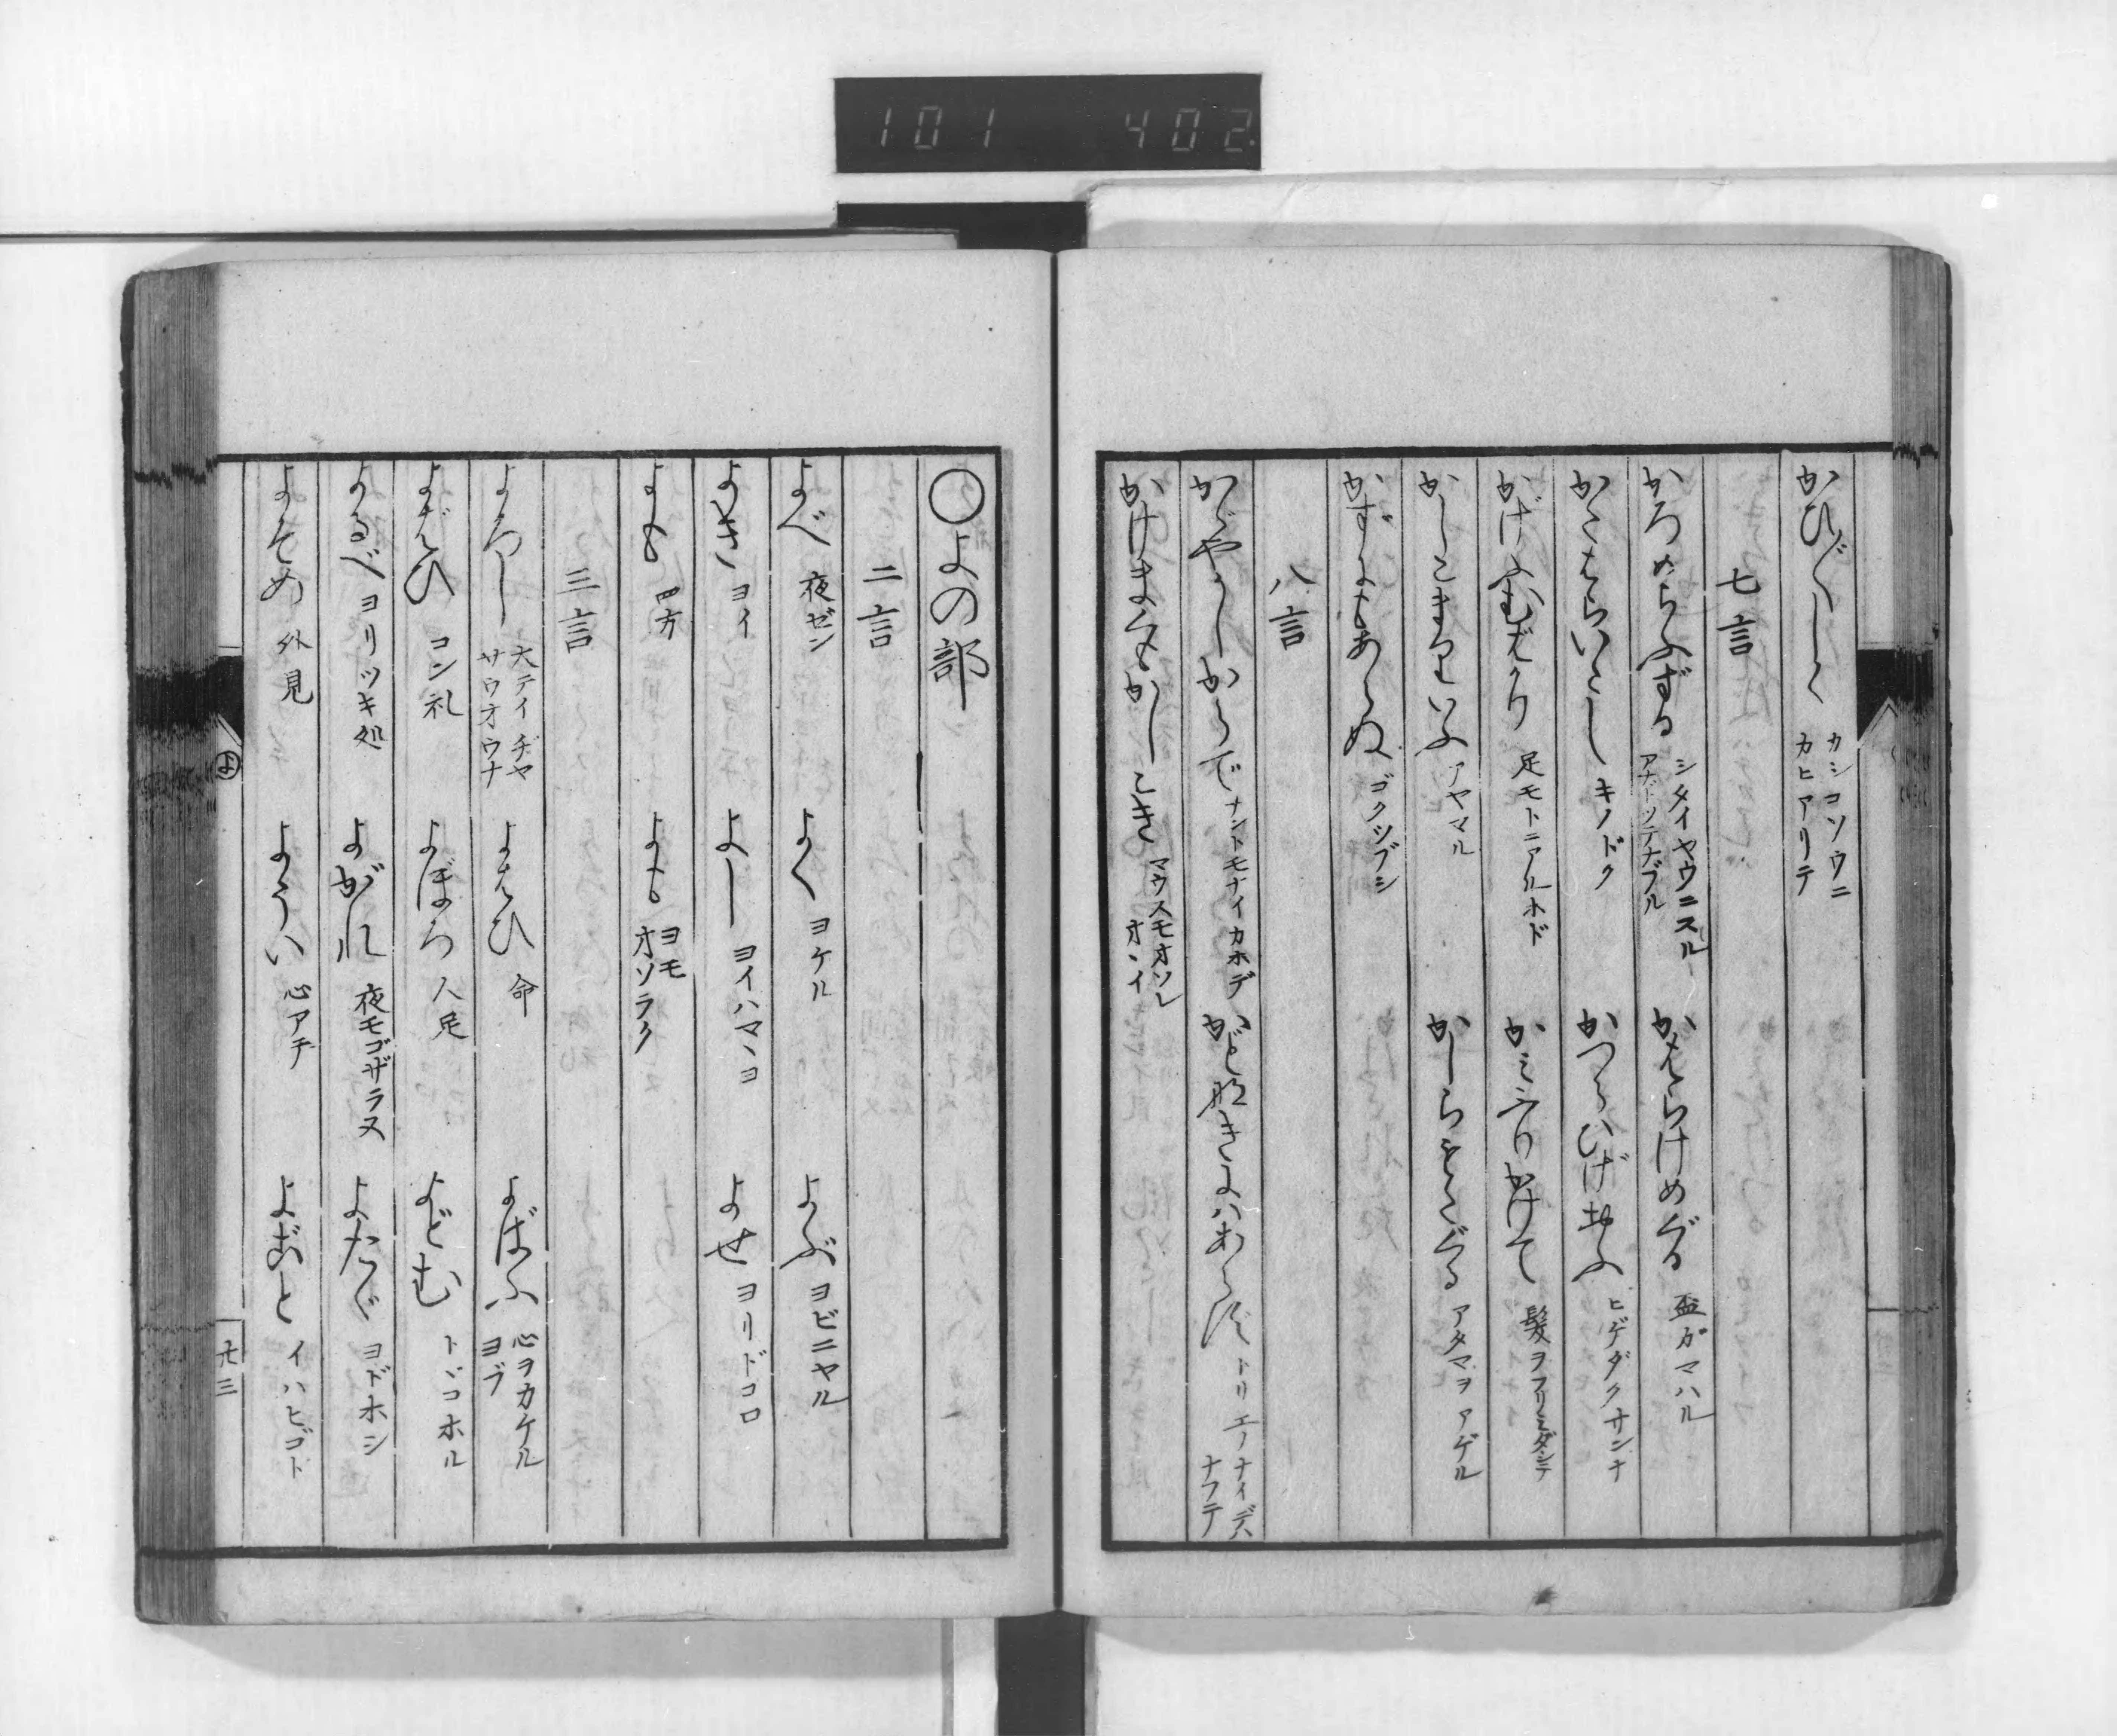 101 402
かひ〴〵しく カシコソウニ カヒアリテ
七言
かろめらふずる シタイヤウニスル
かはらけめぐる 盃ガマハル
かたはらいたし キノドク
かつらひげおふ ヒゲダクサンナ
かげふむばかり 足モトニアルホド
かみふりかけて 髪ヲフリミダシテ
かしこまりいふ アヤマル
かしらもたぐる アタマヲアゲル
かずにもあらぬ ゴクツブシ
八言
かゞやかしからで ナントモナイカホデ
かど御きにハあらず トリエノナイデハナフテ
かけまくもかしこき マウスモオソレオヽイ
○よの部
二言
よべ 夜ゼン
よく ヨケル
よぶ ヨビニヤル
よき ヨイ
よし ヨイハマヽヨ
よせ ヨリドコロ
よも 四方
よも ヨモ オソラク
三言
よろし 大テイヂヤ サウオウナ
よはひ 命
よばふ 心ヲカケル ヨブ
よばひ コン礼
よぼろ 人足
よどむ トヾコホル
よるべ ヨリツキ処
よがれ 夜モゴザラヌ
よたゞ ヨドホシ
よそめ 外見
ようい 心アテ
よごと イハヒゴト
よ
廿三